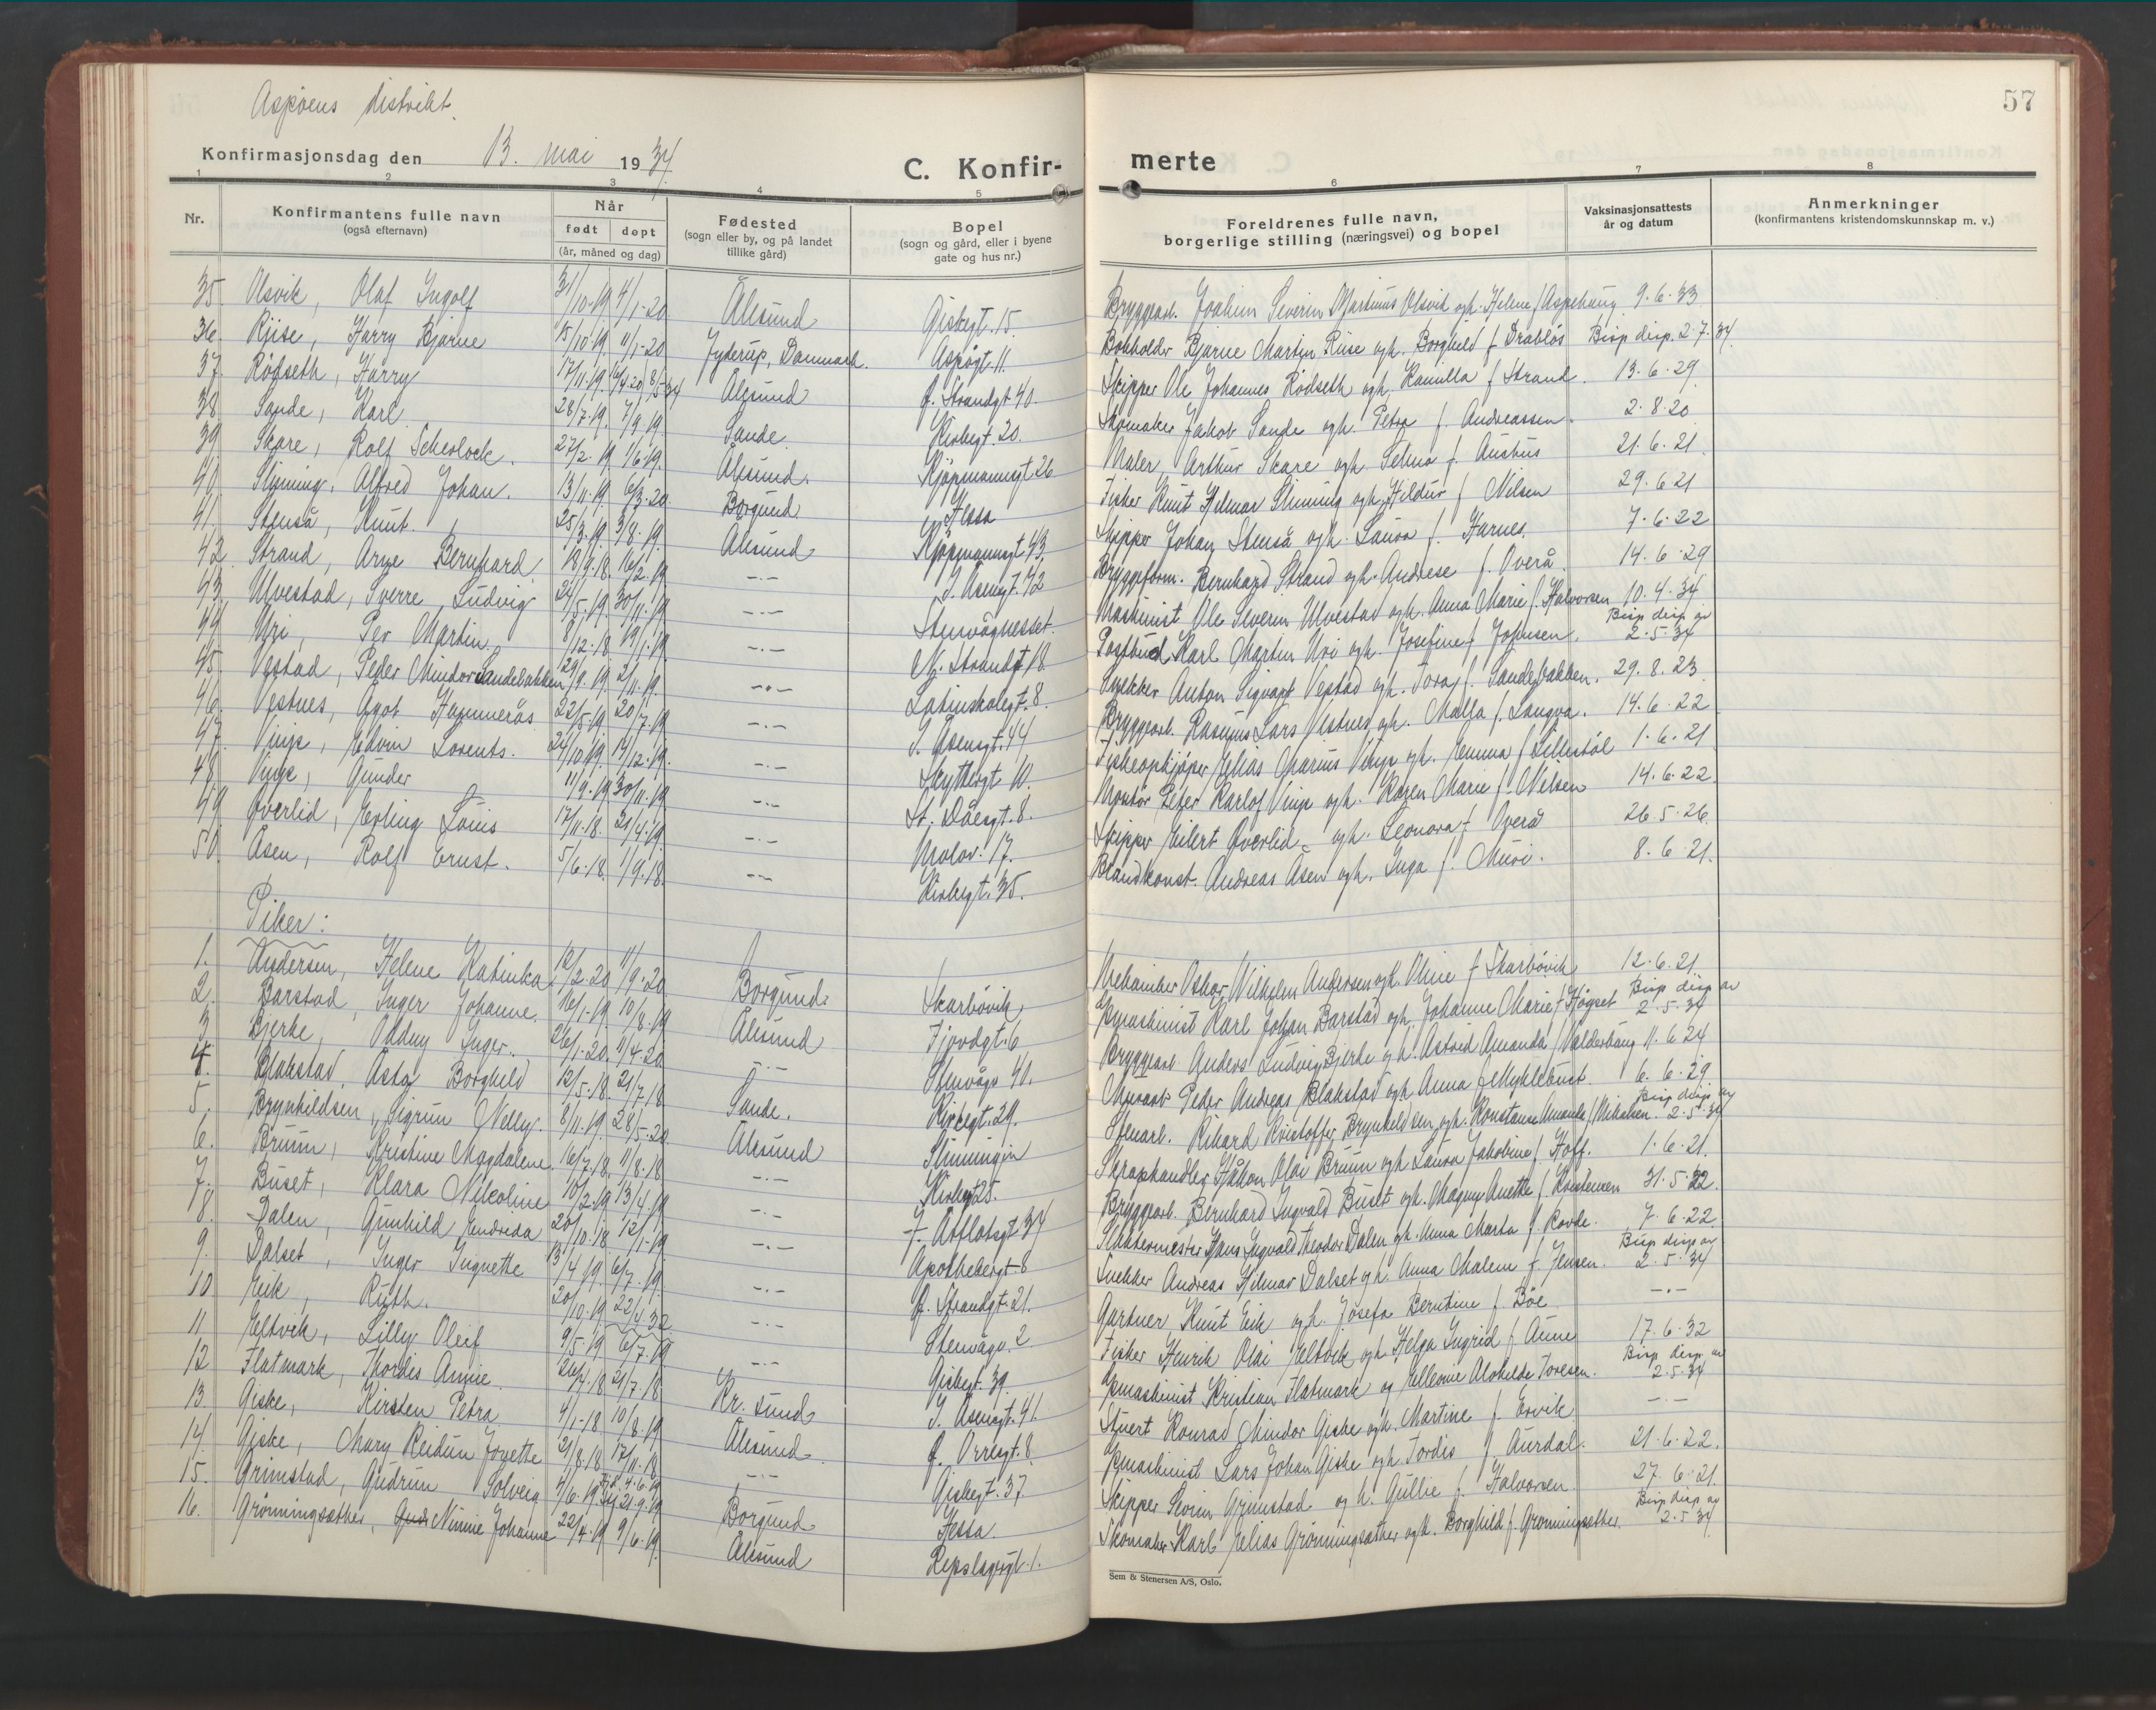 Aspøens distrikt.
57
Konfirmasjonsdag den 13. mai 1934
C. Konfir-
merte
1 2 3 4 5 6 7 8
Nr. Konfirmantens fulle navn (også efternavn) Når født døpt (år, måned og dag) Fødested (sogn eller by, og på landet tillike gård) Bopel (sogn og gård, eller i byene gate og hus nr.) Foreldrenes fulle navn, borgerlige stilling (næringsvei) og bopel Vaksinasjonsattests år og datum Anmerkninger (konfirmantens kristendomskunnskap m. v.)
35. Olsvik, Olaf Ingolf 31/10-19 4/1-20 Ålesund Giskegt. 15. Bryggearb. Joakim Severin Martinus Olsvik og h. Helene f Aspehaug 9.6.33
36. Riise, Harry Bjarne 15/10-19. 11/1-20 Jyderup, Danmark. Aspøgt. 11. Bokholder Bjarne Martin Riise og h. Borghild f Drabløs Bisp disp. 2.7.34.
37. Rødseth, Harry 17/11.19. 16/4.20, 8/5 34 Ålesund Ø. Strandgt 40. Skipper Ole Johannes Rødseth og h. Kamilla f Strand. 13.6.29
38. Sande, Karl 28/7.19. 7/9.19. Sande. Kirkegt. 20. Skomaker Jakob Sande og h. Petra f. Andreassen. 2.8.20
39. Skare, Rolf Scherlock. 27/2.19. 1/6.19. Ålesund. Kjøpmannsgt 26 Maler Arthur Skare og h. Selma f. Aushus 21.6.21.
40. Slinning, Alfred Johan. 13/11.19. 6/3-20. Borgund Hessa Fisker Knut Hilmar Slinning og h. Hildur f Nilsen 29.6 21
41. Stenså, Knut. 25/3.19. 3/8.19. Ålesund Kjøpmannsgt 43. Skipper Johan Stenså og h. Laura f. Harnes. 7.6.22
42. Strand, Arne Bernhard 18/9.18. 16/2.19 -.- J. Åsensgt. 42 Bryggeform. Bernhard Strand og h. Andrese f. Overå. 14.6.29
43. Ulvestad, Sverre Ludvig 24/5.19. 30/11.19 -.- Stenvågnesset. Maskinist Ole Severin Ulvestad og h. Anna Marie f. Halvorsen 10.4.34
44. Uri, Per Martin. 8/12.18 19/1.19. -.- N. Strandgt 18 Postbud Karl Martin Uri og h. Josefine f. Johnsen. Bisp disp av 2.5.34
45. Vestad, Peder Mindor Sandebakken 29/9.19. 2/11.19. -.- Latinskolegt. 8. Snekker Anton Sigvart Vestad og h. Tora f. Sandebakken. 29.8.23.
46. Vestnes, Ågot Hammerås 22/5.19 20/7.19 -.- J. Åsensgt. 44 Bryggearb. Rasmus Lars Vestnes og h. Malfa f. Langva. 14.6.22
47. Vinje, Edvin Lorents. 24/10.19 14/12.19. -.- Skyttergt 10. Fiskeopkjøper Elias Marius Vinje og h. Emma f Lillestøl 1.6.21
48. Vinje, Gunder 11/9.19 30/11.19 -.- St. Olavsgt. 8. Montør Peter Karlof Vinje og h. Karen Marie f. Nilsen 14.6.22.
49. Øverlid, Erling Louis 17/11.18. 21/4.19. -.- Molov. 17. Skipper Eilert Øverlid og h. Leonora f Overå 26.5.26.
50. Åsen, Rolf Ernst. 5/6.18. 1/9.18. -.- Kirkegt. 35. Brandkonst. Andreas Åsen og h. Inga f. Muri. 8.6 21.
Piker:
1. Andersen, Helene Katinka 12/2-20 11/9-20 Borgund. Skarbøvik, Mekaniker Oskar Wilhelm Andersen og h. Oline f Skarbøvik 12.6.21
2. Barstad, Inger Johanne. 16/1-19. 10/8.19 Ålesund Fjordgt. 6 Maskinist Karl Johan Barstad og h. Johanne Marie f Høgset Bisp disp av 2.5.34
3. Bjerke, Oddny Inger. 26/1-20. 11/4-20. -.- Stenvågv 40. Bryggearb. Anders Ludvig Bjerke og h. Astrid Amanda f Valderhaug 11.6 24
4. Blakstad, Åsta Borghild 12/5.18. 21/7.18 Sande. Kirkegt. 29. Murarb. Peder Andreas Blakstad og h. Anna f. Myklebust 6.6.29
5. Brynhildsen, Sigrun Nelly. 8/11.19. 28/5-20 Ålesund Slinningen Stenarb. Rikard Kristoffer Brynhildsen og h. Konstanse Amanda f Mikalsen. Bisp disp av 2.5.34
6. Bruun, Kristine Magdalene. 16/7.18. 11/8.18 -.- Kirkegt 25. Skraphandler Håkon Olai Bruun og h. Laura Jakobine f. Hoff. 1.6.21.
7. Buset, Klara Nikoline 10/2.19 13/4.19 -.- J. Aflotsgt 34 Bryggearb. Bernhard Ingvald Buset og h. Magny Anette f Kristensen 31.5.22.
8. Dalen, Gunhild Endrida 20/10.18 12/1-19 -.- Apothekergt 8 Skattemester Hans Ingvald Theodor Dalen og h. Anna Marta f. Rovde. 7.6.22.
9. Dalset, Inger Ingnette 13/4.19. 6/7.19. -.- Ø. Strandgt. 21. Snekker Andreas Hilmar Dalset og h. Anna Malene f. Jensen. Bisp disp av 2.5.34
10. Eik, Ruth. 20/10.19 22/4.32 -.- Stenvågv. 2 Gartner Knut Eik og h. Josefa Berntine f Bøe -.-
11. Eltvik, Lilly Oleif 9/5.19 6/7.19 -.- Giskegt. 39 Fisker Henrik Olai Eltvik og h. Helga Ingrid f. Aune 17.6.32
12. Flatmark, Thordis Annie 26/4.18 21/7.18 Kr. sund J. Åsensgt. 41. Maskinist Kristian Flatmark og Elleonie Alvhilde Toresen. Bisp disp av 2.5.34
13. Giske, Kirsten Petra 4/1-18 10/8.19 Ålesund Ø. Orregt. 8. Stuert Konrad Mindor Giske og h. Martine f. Ervik -.-
14. Giske, Mary Reidun Jorette 21/8.18 17/11.18. -.- Giskegt. 37. Maskinist Lars Johan Giske og h. Tordis f Aurdal. 21.6.22.
15. Grimstad, Gudrun Solveig 4/6.19 4.6.19 21.9.19 Borgund Hessa. Skipper Severin Grimstad og h. Gullie f. Halvorsen. 27.6.21.
16. Grønningsæther, Ninnie Johanne 22/4.19 9/6.19. Ålesund Repslagergt. 1. Skomaker Karl Elias Grønningsæther og h. Borghild f. Grønningsæther. Bisp disp av 2.5 34
Sem & Stenersen A/S, Oslo.